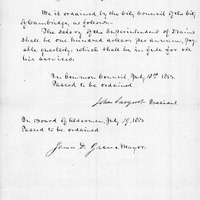 Be it ordained by the City Council of the City
of Cambridge, as follows:
The salary of the Superintendent of Drains
shall be one hundred dollars per annum, pay-
able quarterly, which shall be in full for all
his services.
In Common Council, July 18th 1853.
Passed to be ordained
John Sargent President
In Board of Aldermen, July 19, 1853
Passed to be ordained
James D. Green Mayor.